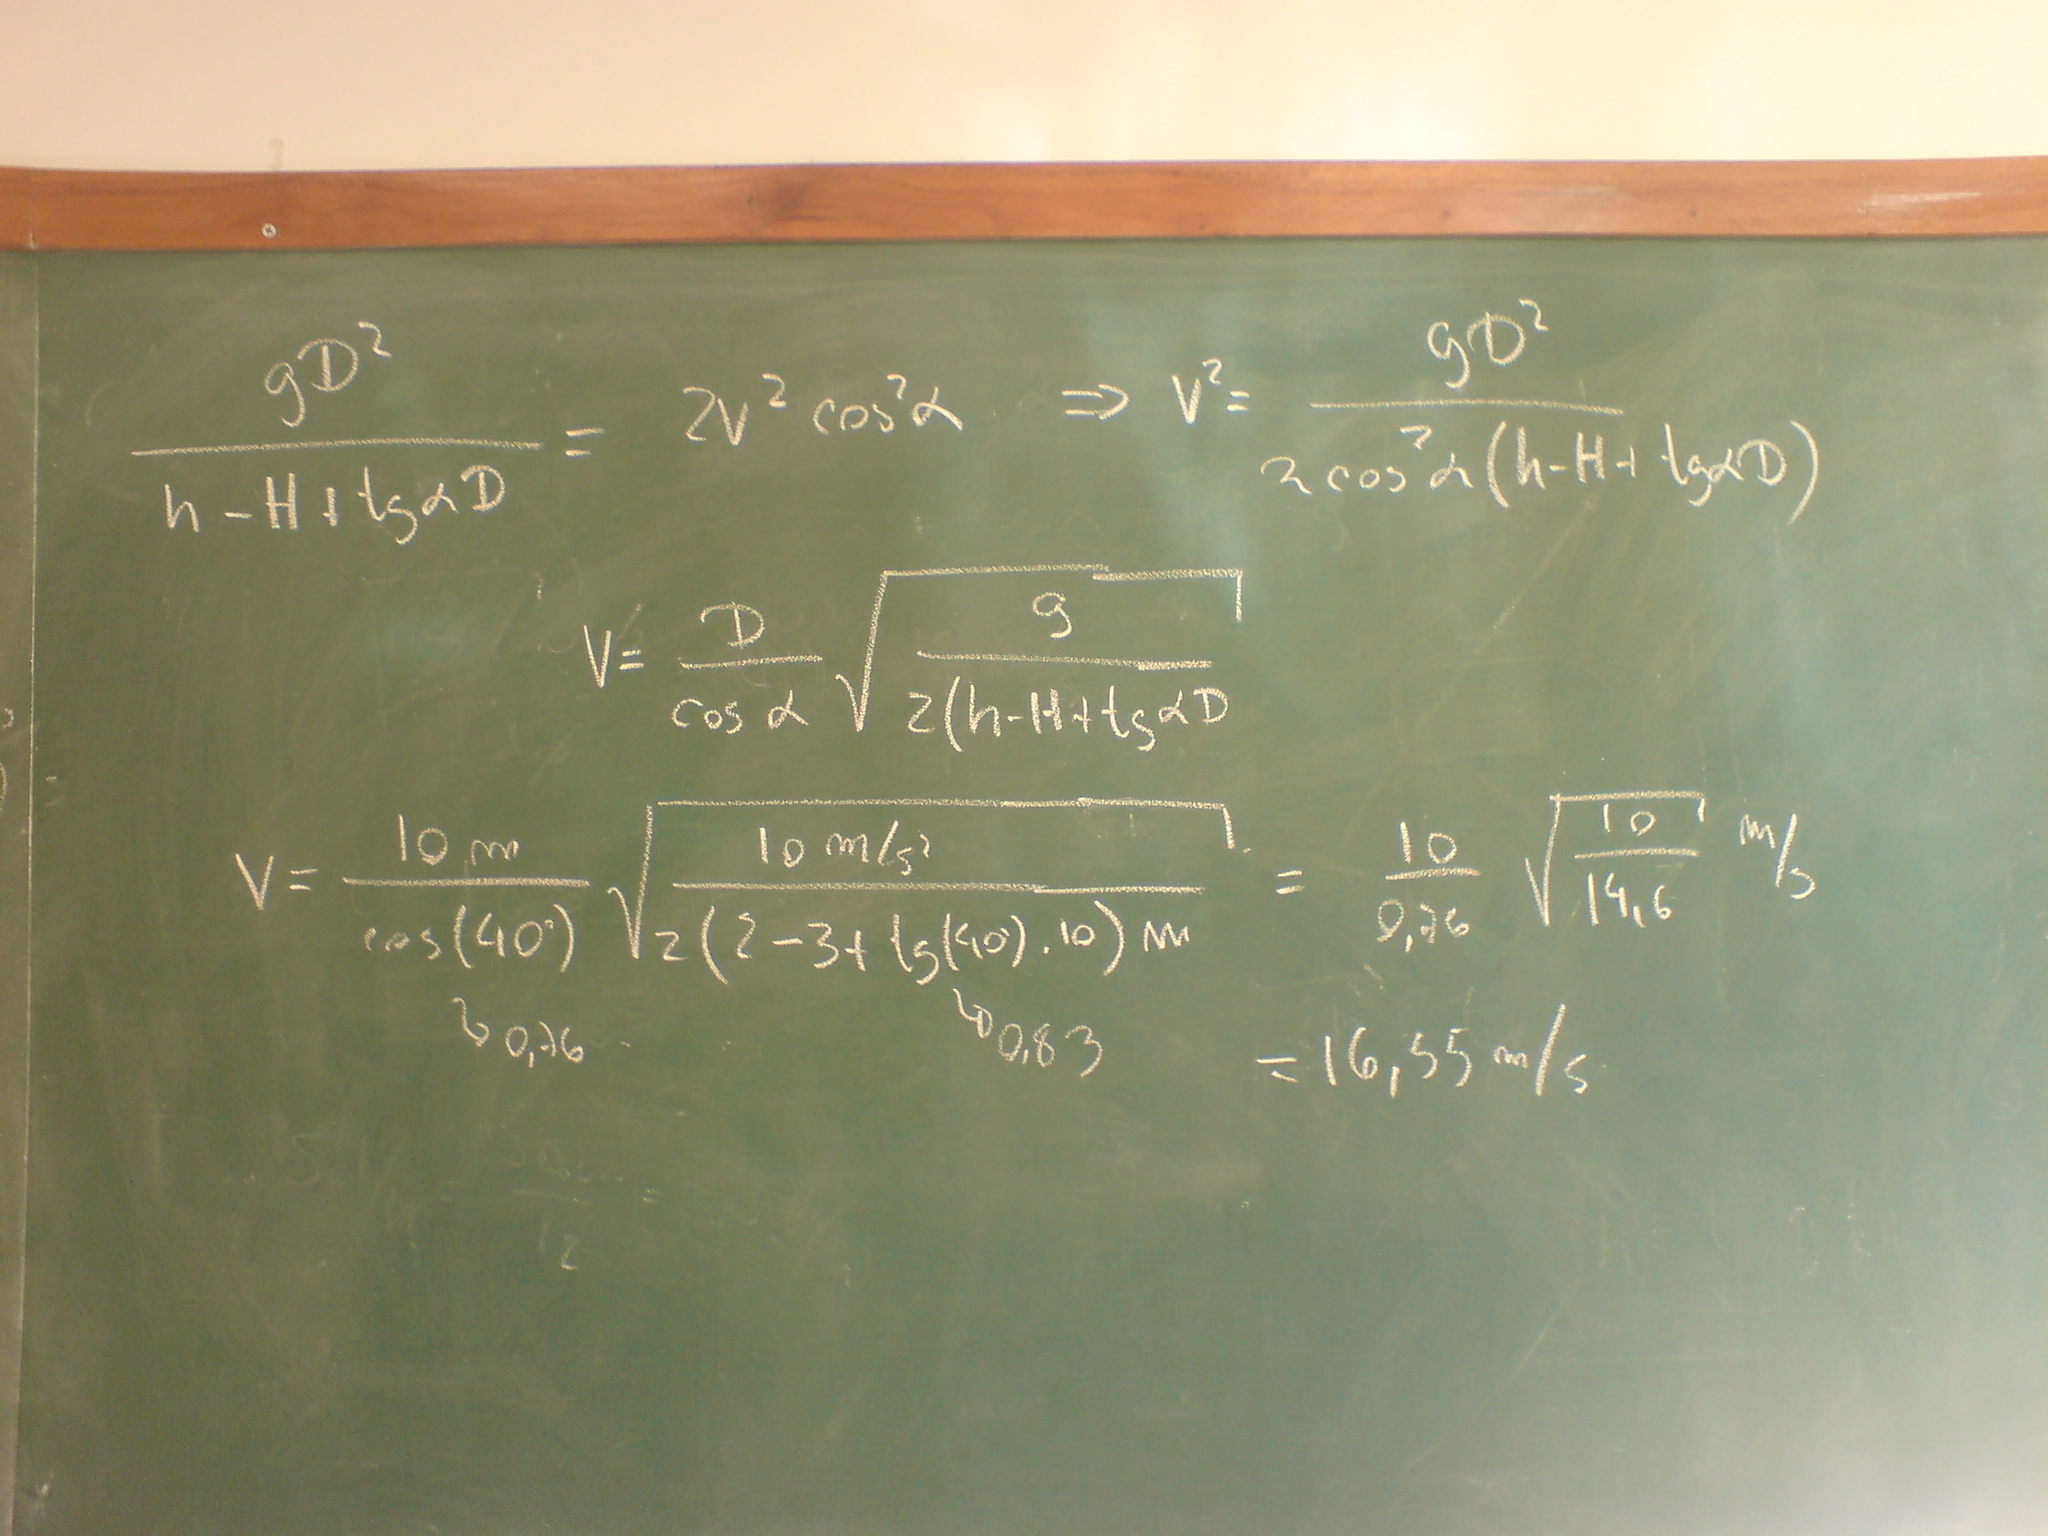 gD² / (h-H+tgαD) = 2v² cos²α ⇒ v² = gD² / 2cos²α(h-H+tgαD)
V = D / cos α √ g / 2(h-H+tgαD
V = 10 m / cos(40°) √ 10 m/s² / 2(2-3+tg(40°).10) m = 10 / 0,76 √ 10 / 14,6 m/s
↳ 0,76 ↳ 0,83 = 16,55 m/s